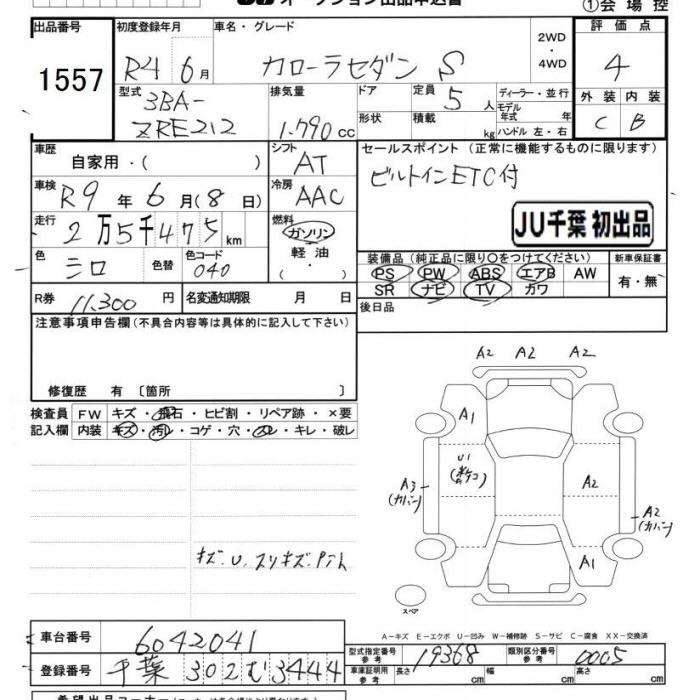 オークション出品申込書
①会場控
出品番号 1557
初度登録年月 R4 6月
車名・グレード カローラセダン S
2WD・4WD
評価点 4
型式 3BA-ZRE212
排気量 1.790 cc
ドア 形状
定員 5 人
積載 kg
ディーラー・並行
モデル年式 年式
ハンドル 左・右
外装 C 内装 B
車歴 自家用・( )
シフト AT
セールスポイント (正常に機能するものに限ります)
ビルトインETC付
JU千葉 初出品
車検 R9年6月(8日)
冷房 AAC
走行 2万5千475km
燃料 ガソリン 軽油・
色 シロ 色替 色コード 040
装備品 (純正品に限り〇をつけてください)
PS PW ABS エアB AW
SR ナビ TV カワ
新車保証書 有・無
R券 11,300円 名変通知期限 月 日
後日品
注意事項申告欄(不具合内容等は具体的に記入して下さい)
修復歴 有〔箇所 〕
検査員記入欄
FW キズ・飛石・ヒビ割・リペア跡・×要
内装 キズ・汚レ・コゲ・穴・スレ・キレ・破レ
キズ、U、スリキズ、
A2 A2 A2
A1
U1
A3(カバー)
A2
A2(カバー)
A1
スペア
A-キズ E-エクボ U-凹み W-補修跡 S-サビ C-腐食 XX-交換済
車台番号 6042041
登録番号 千葉 302 む 3444
型式指定番号 参考 19368 類別区分番号 参考 0005
車庫証明用 参考 長さ cm 幅 cm 高さ cm